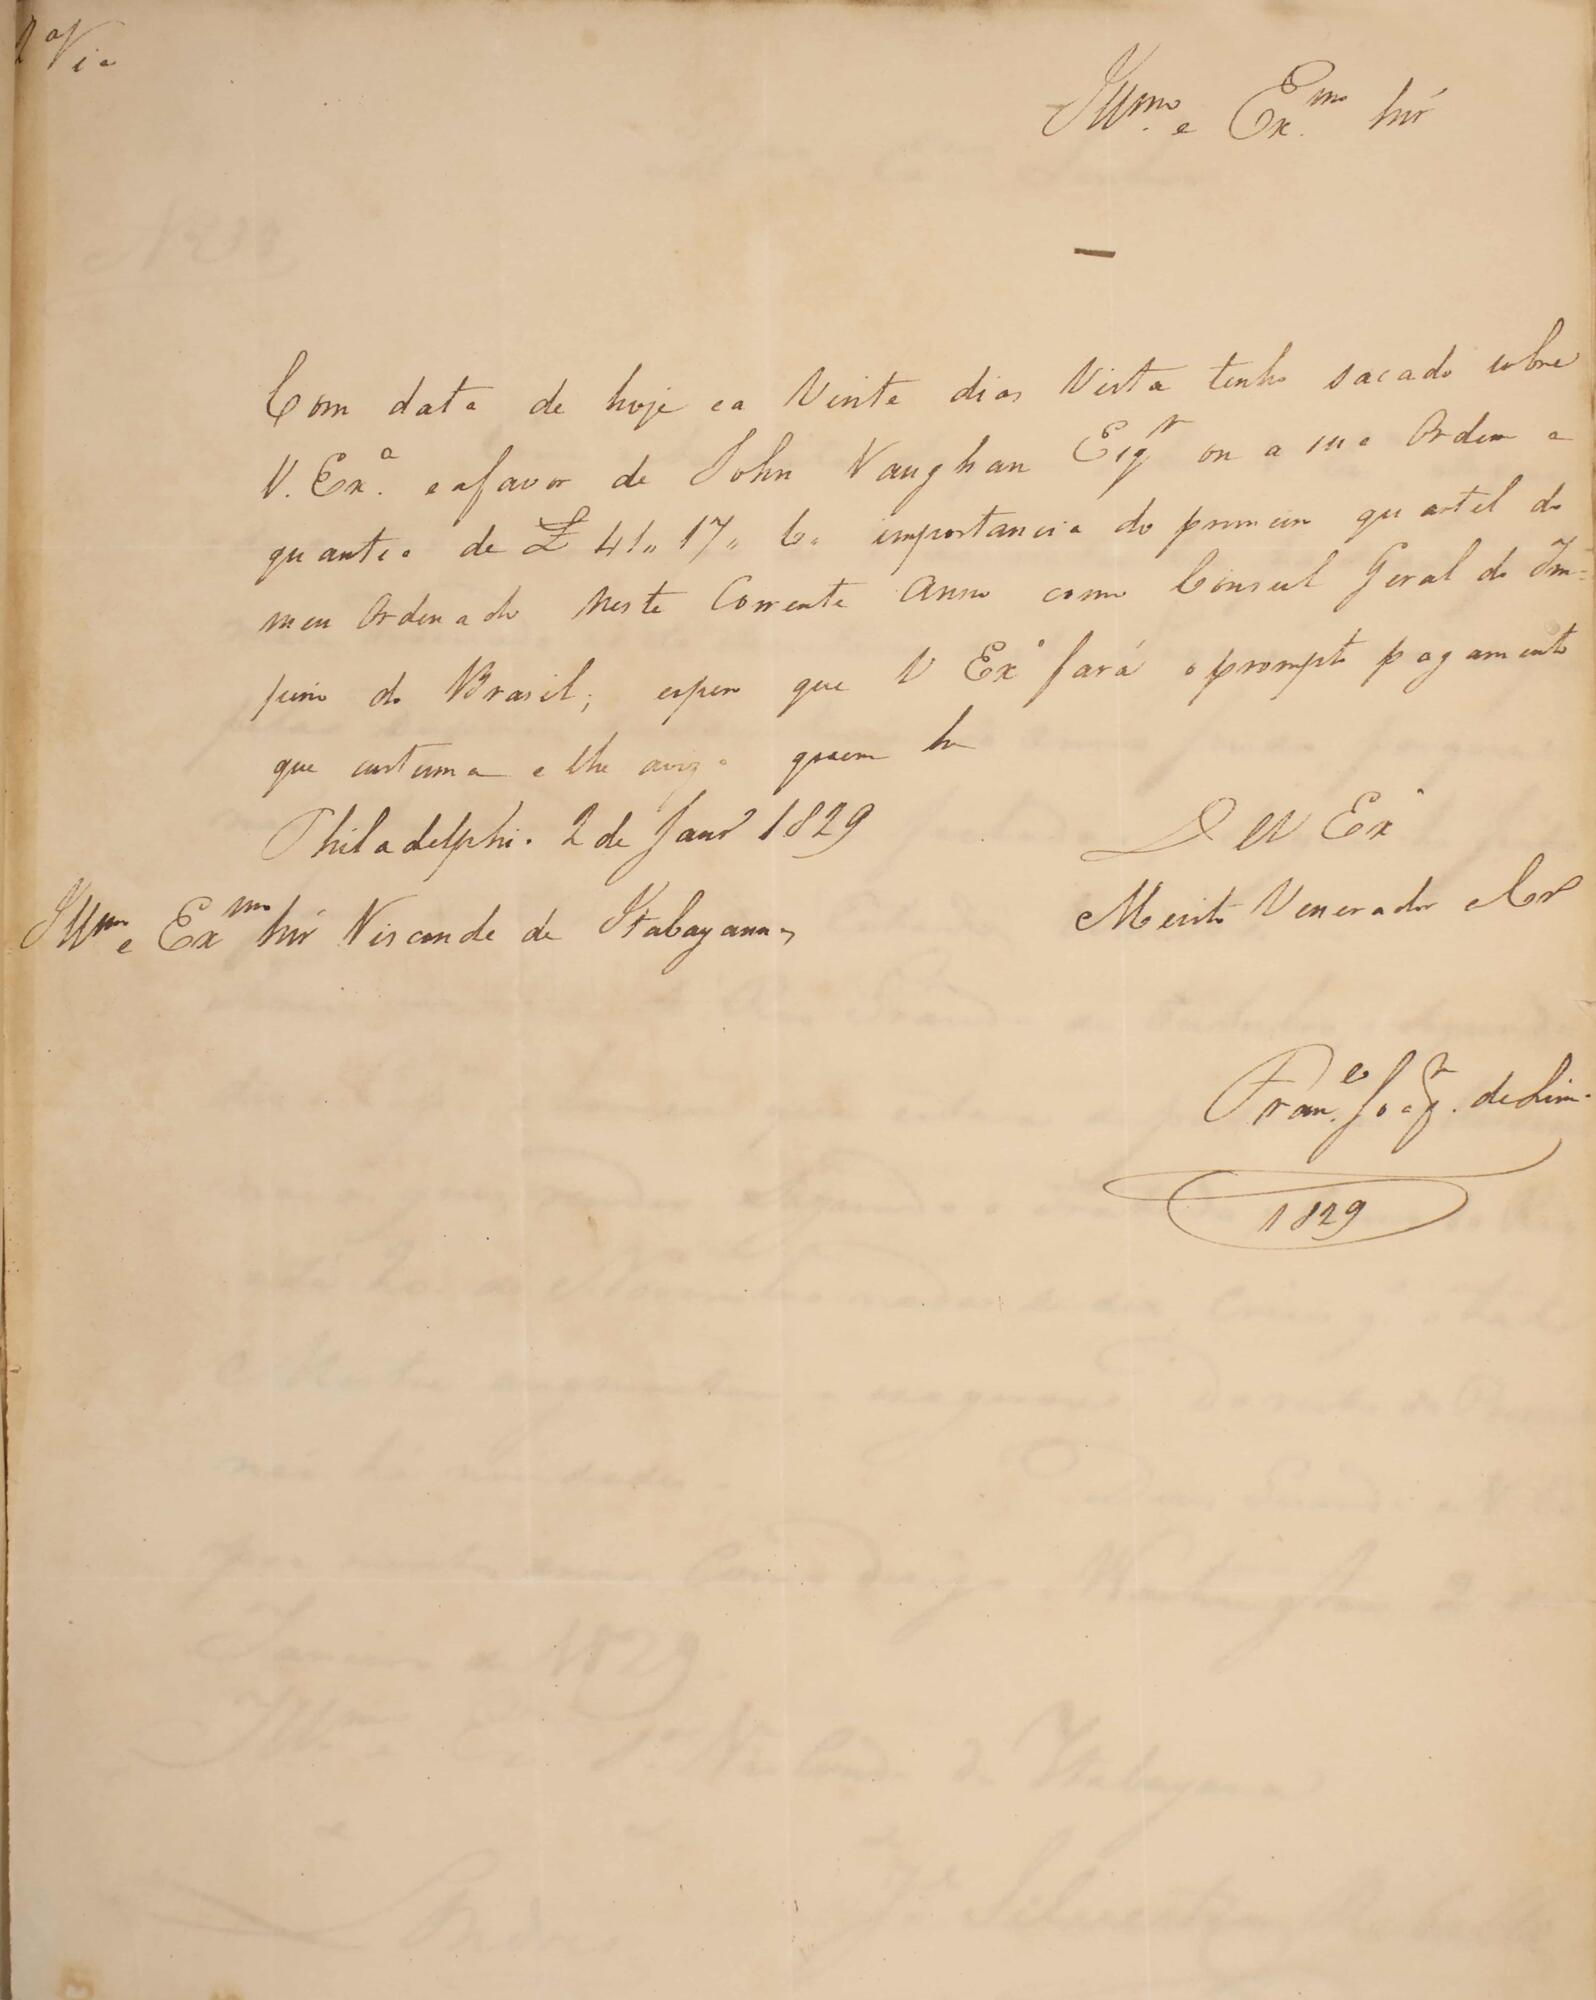 1ª Via
Illmo. e Exmo. Snr
Com data de hoje e a Vinte dias Vista tenho sacado sobre
V. Exª. e afavor de John Vaughan Esqr ou a sua Ordem a
quantia de £ 41,, 17,, 6. importancia do primeiro quartel do
meu Ordenado neste Corrente Anno como Consul Geral do Im=
perio do Brasil; espero que V Exª fará o prompto pagamento
que custuma e lhe aviza quem he
Philadelphia 2 de Janro 1829
De V Exª
Illmo e Exmo Snr Visconde de Itabayanna,
Muito Venerador e Cro
Franco. Joaqm. de Lima
1829